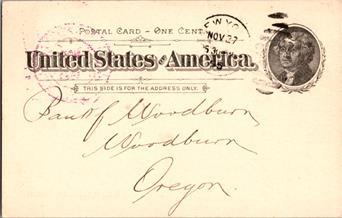 POSTAL CARD – ONE CENT
United States of America.
NOV 27
THIS SIDE IS FOR THE ADDRESS ONLY.
Bank of Woodburn
Woodburn
Oregon.